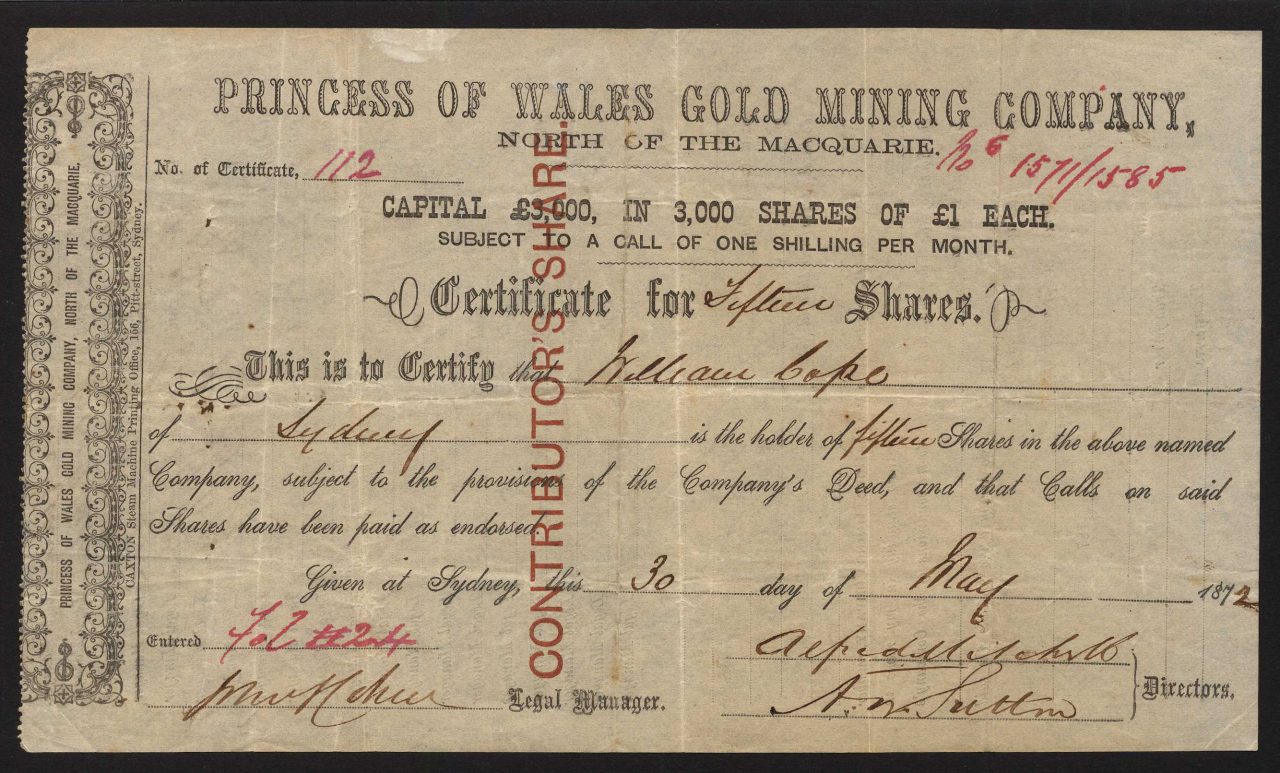 PRINCESS OF WALES GOLD MINING COMPANY,
NORTH OF THE MACQUARIE.
No. of Certificate, 112
Nos 1571/1585
CAPITAL £3,000, IN 3,000 SHARES OF £1 EACH.
SUBJECT TO A CALL OF ONE SHILLING PER MONTH.
Certificate for Fifteen Shares.
This is to Certify that William Cope
of Sydney is the holder of fifteen Shares in the above named
Company, subject to the provisions of the Company's Deed, and that Calls on said
Shares have been paid as endorsed.
Given at Sydney, this 30 day of May 1872
Entered Fol 24
Legal Manager.
Alfred
A. W. Sutton
Directors.
CONTRIBUTOR'S SHARE.
PRINCESS OF WALES GOLD MINING COMPANY, NORTH OF THE MACQUARIE.
CAXTON Steam Machine Printing Office, 156, Pitt-street, Sydney.